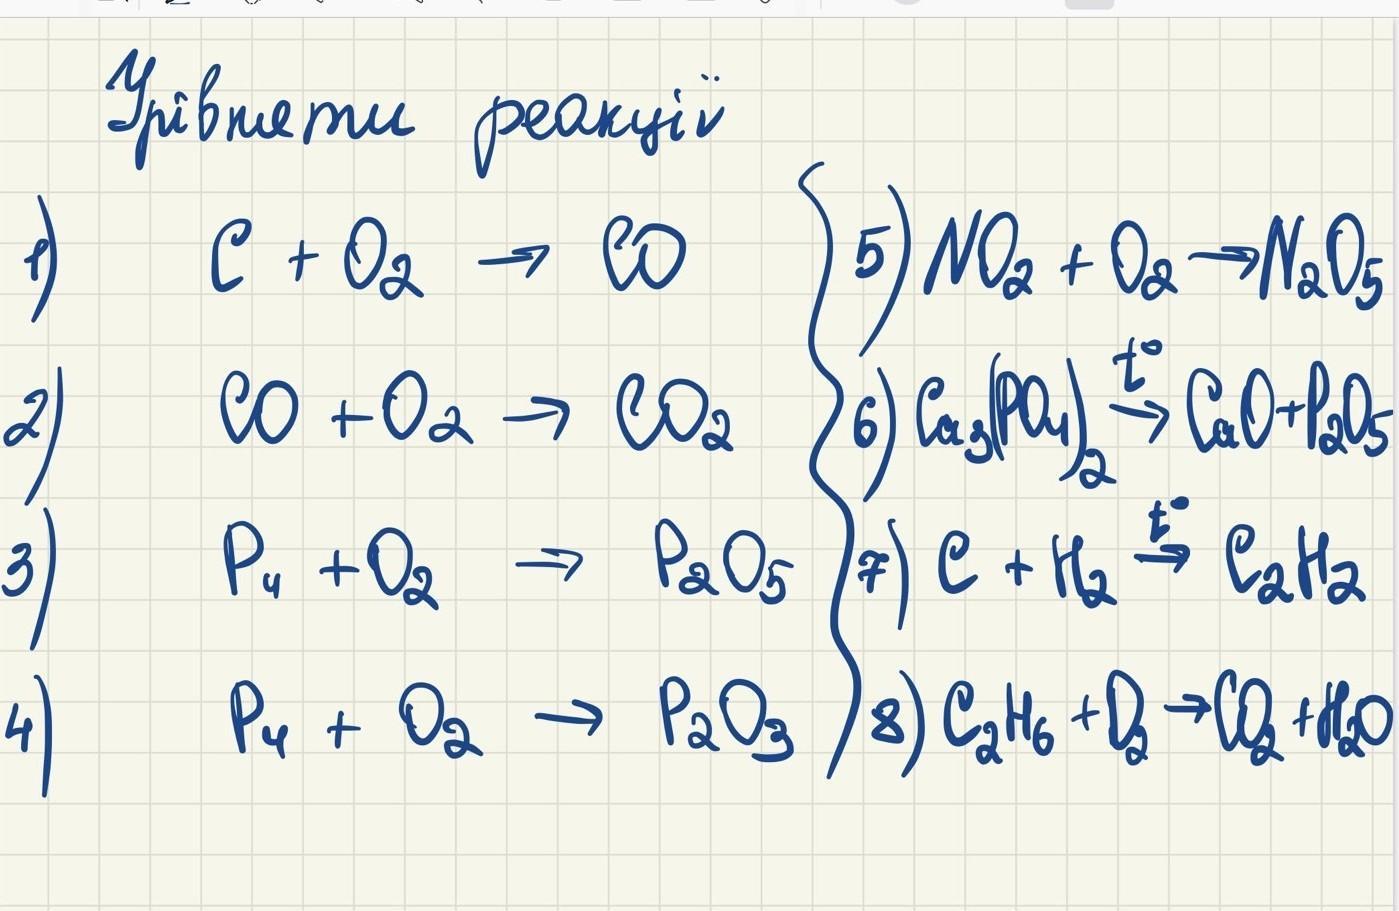 Урівняти реакції
1) C + O₂ → CO
2) CO + O₂ → CO₂
3) P₄ + O₂ → P₂O₅
4) P₄ + O₂ → P₂O₃
5) NO₂ + O₂ → N₂O₅
6) Ca₃(PO₄)₂ t° → CaO + P₂O₅
7) C + H₂ t° → C₂H₂
8) C₂H₆ + O₂ → CO₂ + H₂O